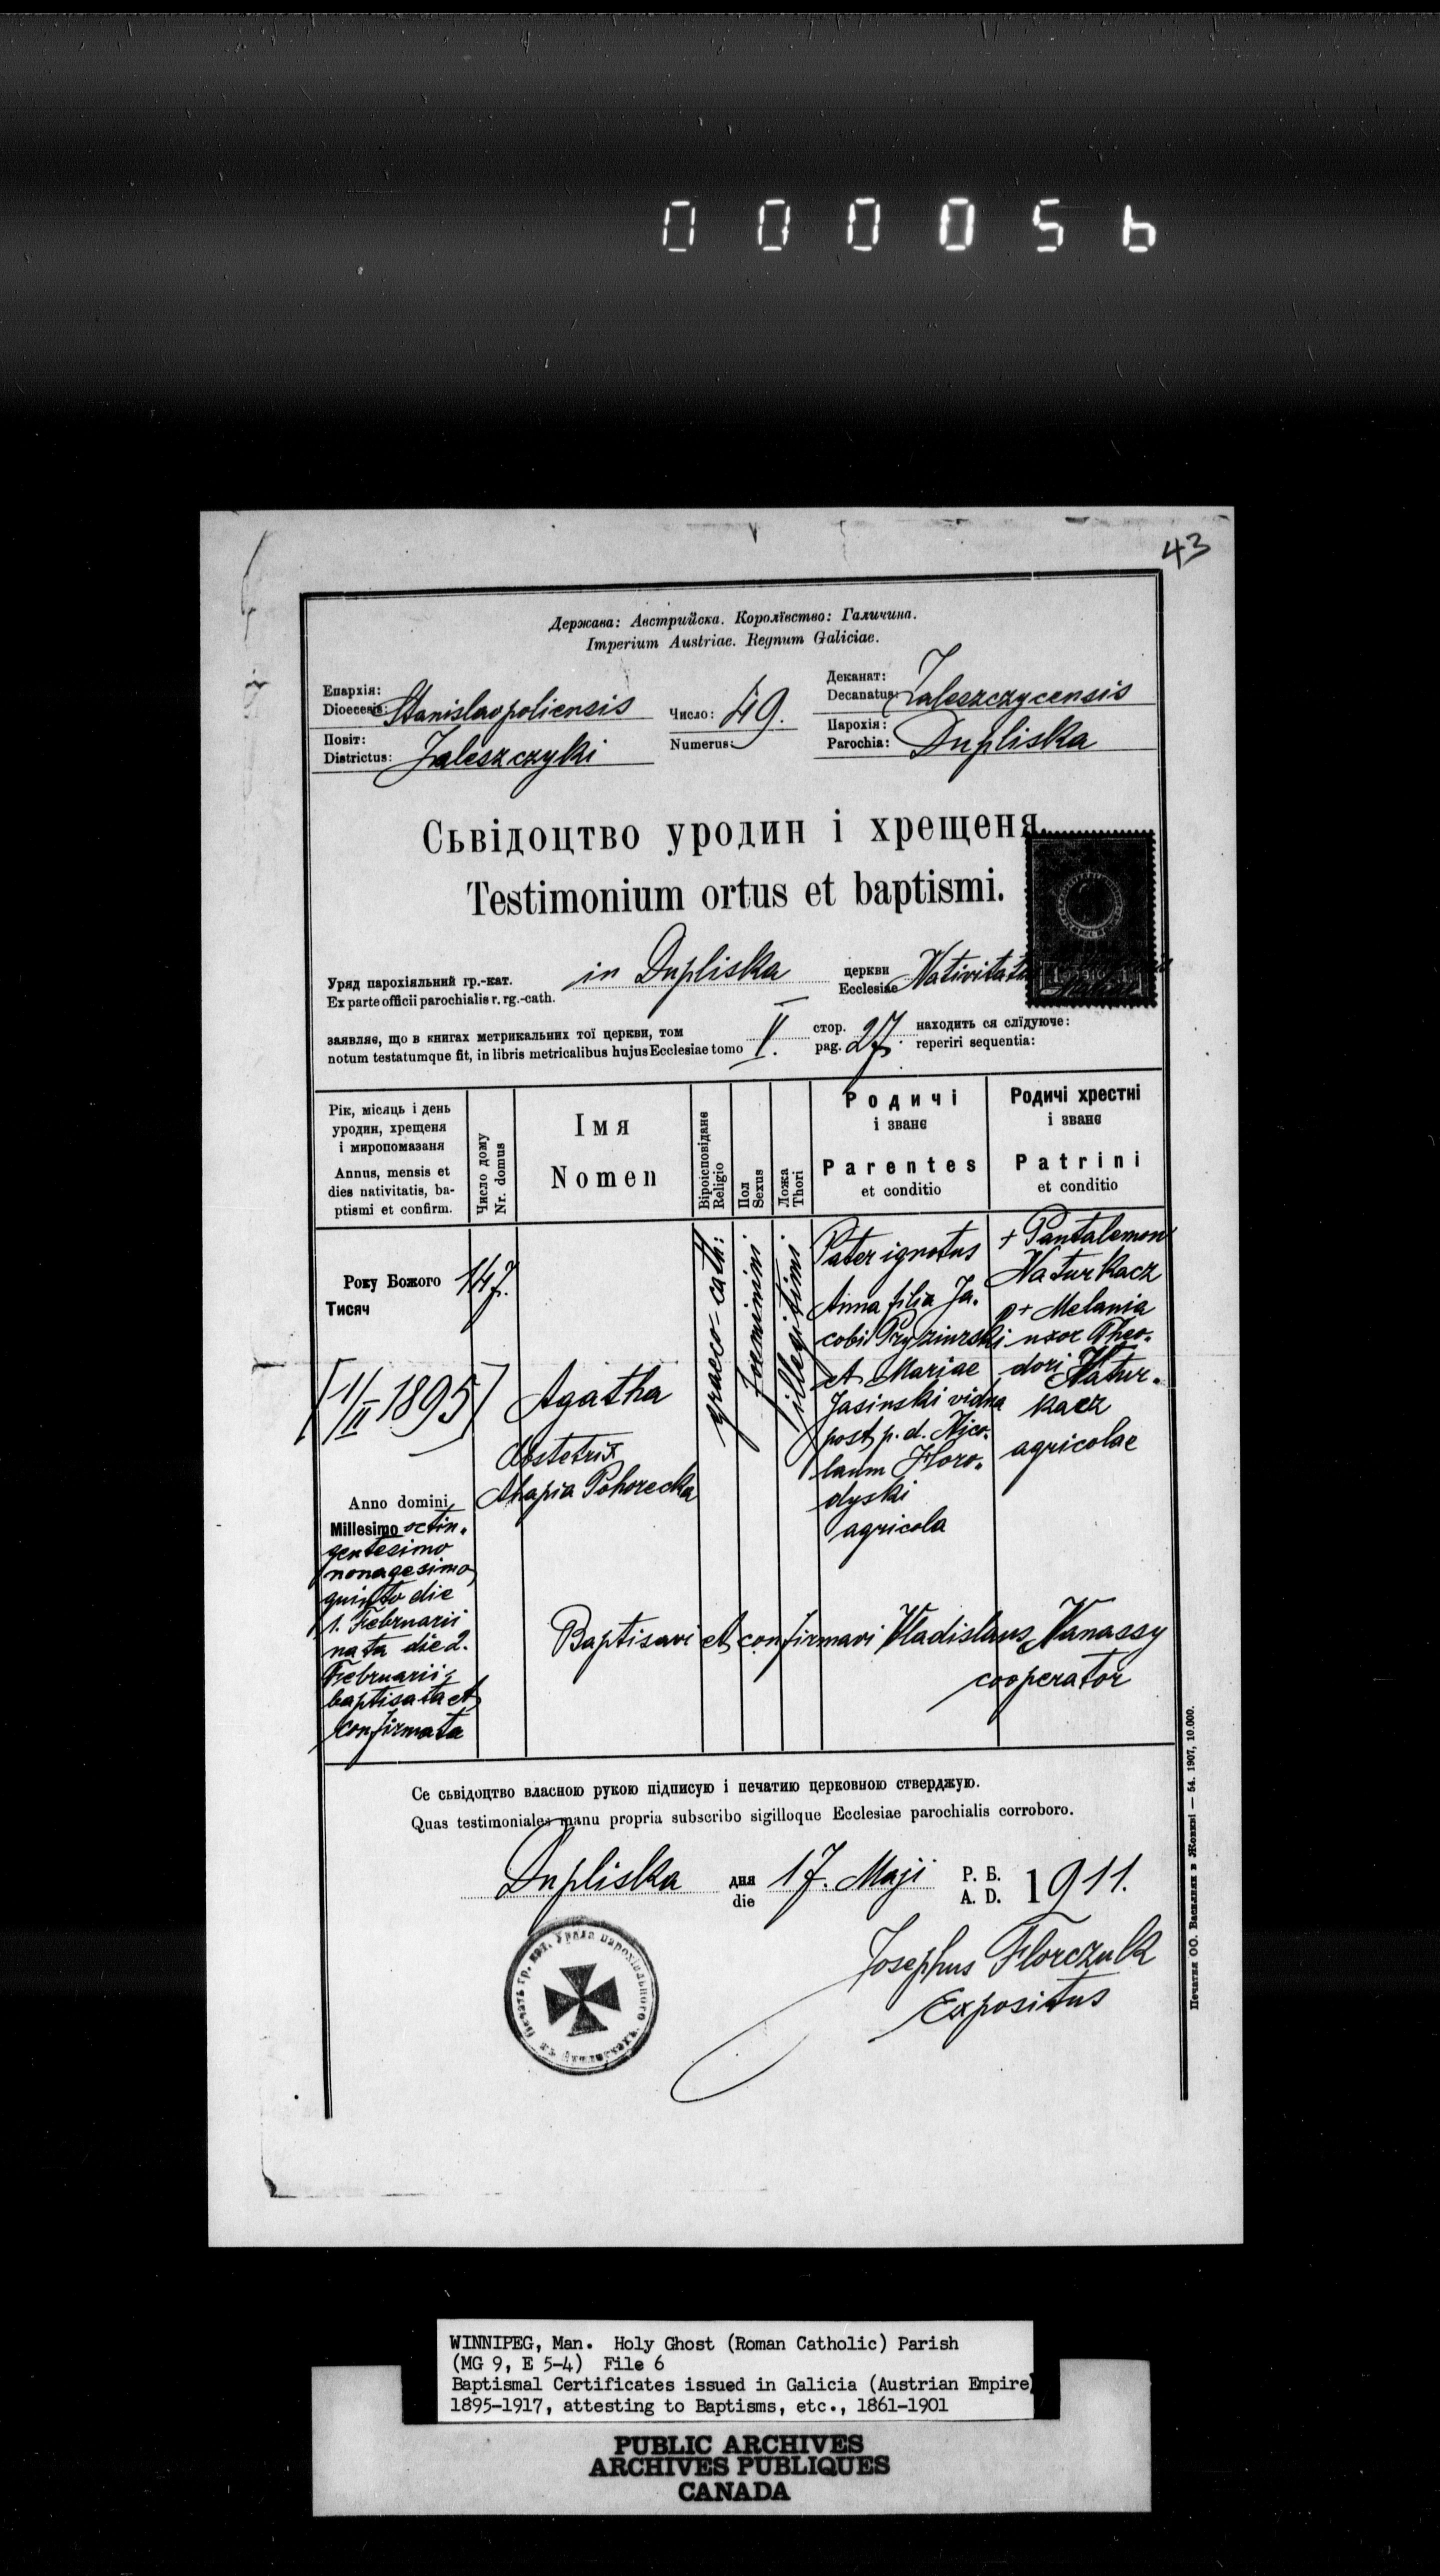 000056
43
Держава: Австрийска. Королївство: Галичина.
Imperium Austriae. Regnum Galiciae.
Епархія:
Dioecesis: Stanislaopoliensis
Число: 49.
Numerus:
Деканат:
Decanatus: Zaleszczycensis
Повіт:
Districtus: Zaleszczyki
Парохія:
Parochia: Dupliska
Сьвідоцтво уродин і хрещеня.
Testimonium ortus et baptismi.
Уряд парохіяльний гр.-кат. in Dupliska церкви
Ex parte officii parochialis r. rg.-cath. Ecclesiae
заявляє, що в книгах метрикальних тої церкви, том II. стор. 27. находить ся слїдуюче:
notum testatumque fit, in libris metricalibus hujus Ecclesiae tomo pag. reperiri sequentia:
Рік, місяць і день
уродин, хрещеня
і миропомазаня
Annus, mensis et
dies nativitatis, ba-
ptismi et confirm.
Число дому
Nr. domus
Імя
Nomen
Віроісповідане
Religio
Пол
Sexus
Ложа
Thori
Родичі
і званє
Parentes
et conditio
Родичі хрестні
і званє
Patrini
et conditio
Року Божого
Тисяч
[1/II 1895]
Anno domini
Millesimo octin-
gentesimo
nonagesimo
quinto die
1. Februarii
nata die 2.
Februarii
baptisata et
confirmata
147.
Agatha
Obstetrix
Ahapia Pohorecka
graeco-cath:
foeminini
illegitimi
Pater ignotus
Anna filia Ja-
cobi
et Mariae
Jasinski vidua
post p. d. Nico-
laum Horo-
dyski
agricola
+ Pantalemon
Naturkacz
+ Melania
uxor Theo-
dori Natur-
kacz
agricolae
Baptisavi et confirmavi Vladislaus Vanassy
cooperator
Се сьвідоцтво власною рукою підписую і печатию церковною стверджую.
Quas testimoniales manu propria subscribo sigilloque Ecclesiae parochialis corroboro.
Dupliska дня 17. Maji Р. Б. 1911.
die A. D.
Josephus Florczuk
Expositus
Печатня ОО. Василиян в Жовкві — 54. 1907, 10.000.
WINNIPEG, Man. Holy Ghost (Roman Catholic) Parish
(MG 9, E 5-4) File 6
Baptismal Certificates issued in Galicia (Austrian Empire)
1895-1917, attesting to Baptisms, etc., 1861-1901
PUBLIC ARCHIVES
ARCHIVES PUBLIQUES
CANADA